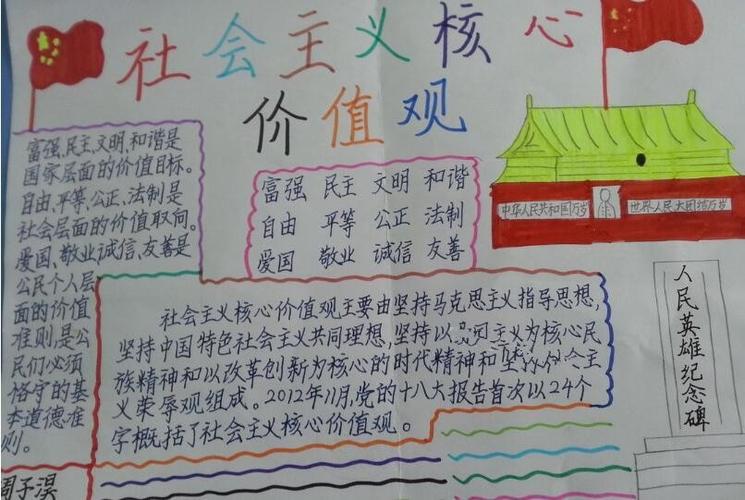 社会主义核心
价值观
富强、民主、文明、和谐是
国家层面的价值目标。
自由、平等、公正、法制是
社会层面的价值取向。
爱国、敬业诚信、友善是
公民个人层
面的价值
准则,是公
民们必须
恪守的基
本道德准
则。
富强 民主 文明 和谐
自由 平等 公正 法制
爱国 敬业 诚信 友善
中华人民共和国万岁
世界人民大团结万岁
社会主义核心价值观主要由坚持马克思主义指导思想,
坚持中国特色社会主义共同理想,坚持以爱国主义为核心民
族精神和以改革创新为核心的时代精神和坚 会主
义荣辱观组成。2012年11月,党的十八大报告首次以24个
字概括了社会主义核心价值观。
人民英雄纪念碑
周子淏